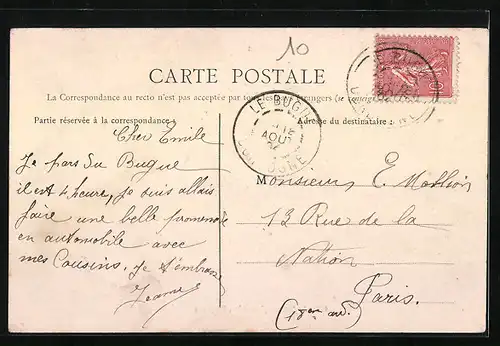 10
CARTE POSTALE
La Correspondance au recto n'est pas acceptée par tous
Partie réservée à la correspondance
Adresse du destinataire
LE BUGUE
AOUT
DORDOGNE
Cher Emile
Je pars du Bugue
il est 4 heure, je vais allais
faire une belle promenade
en automobile avec
mes Cousins. Je t'embrasse
Jeanne
Monsieur E. Mathion
13 Rue de la
Nation
Paris.